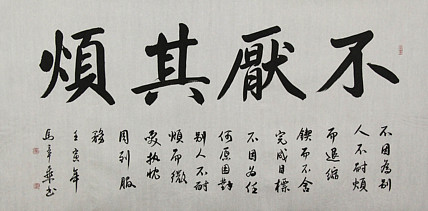 不厭其煩
不因為別
人不耐煩
而退縮
鍥而不舍
完成目標
不因為任
何原因對
別人不耐
煩而微
笑執忱
周到服
務
壬寅年
馬章乘書